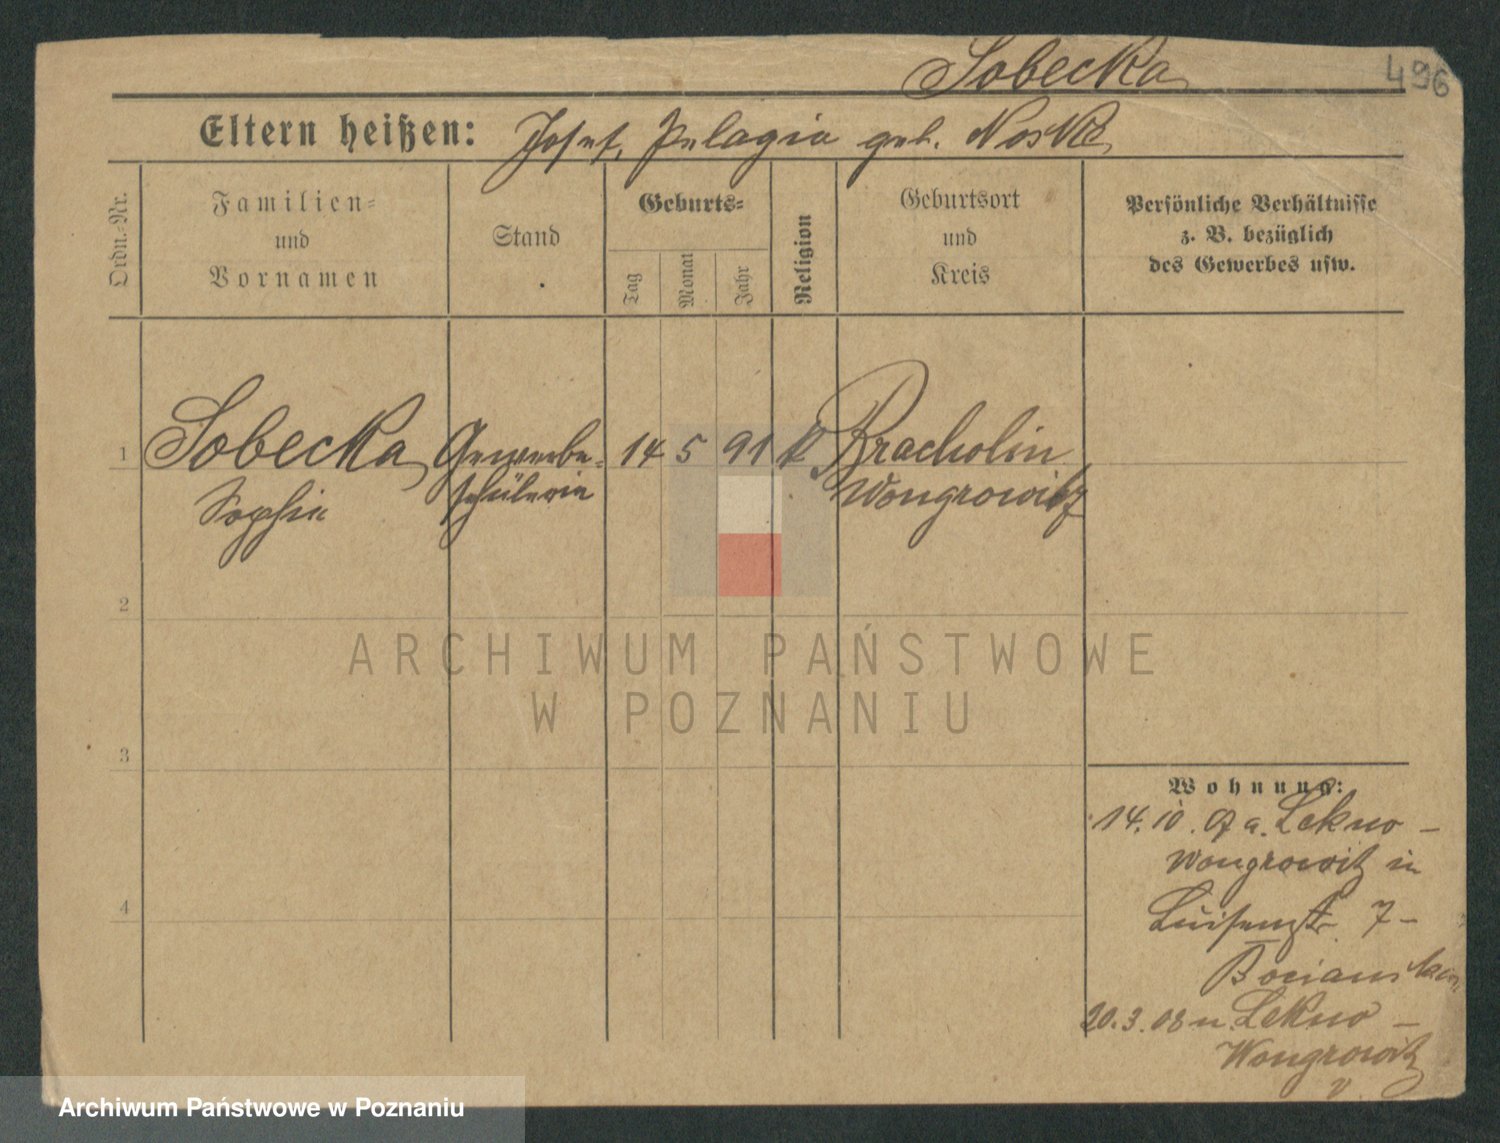 Sobecka
496
Eltern heißen: Josef, Pelagia geb. Noske
Ordn.-Nr.
Familien-
und
Vornamen
Stand
Geburts-
Tag
Monat
Jahr
Religion
Geburtsort
und
Kreis
Persönliche Verhältnisse
z. B. bezüglich
des Gewerbes usw.
1 Sobecka Gewerbe- 14 5 91 k Bracholin
Sophie schülerin Wongrowitz
2
3
4
ARCHIWUM PAŃSTWOWE
W POZNANIU
Wohnung:
14. 10. 07 a. Lekno -
Wongrowitz in
Luisenstr. 7 -
20.3.08 n. Lekno -
Wongrowitz
Archiwum Państwowe w Poznaniu